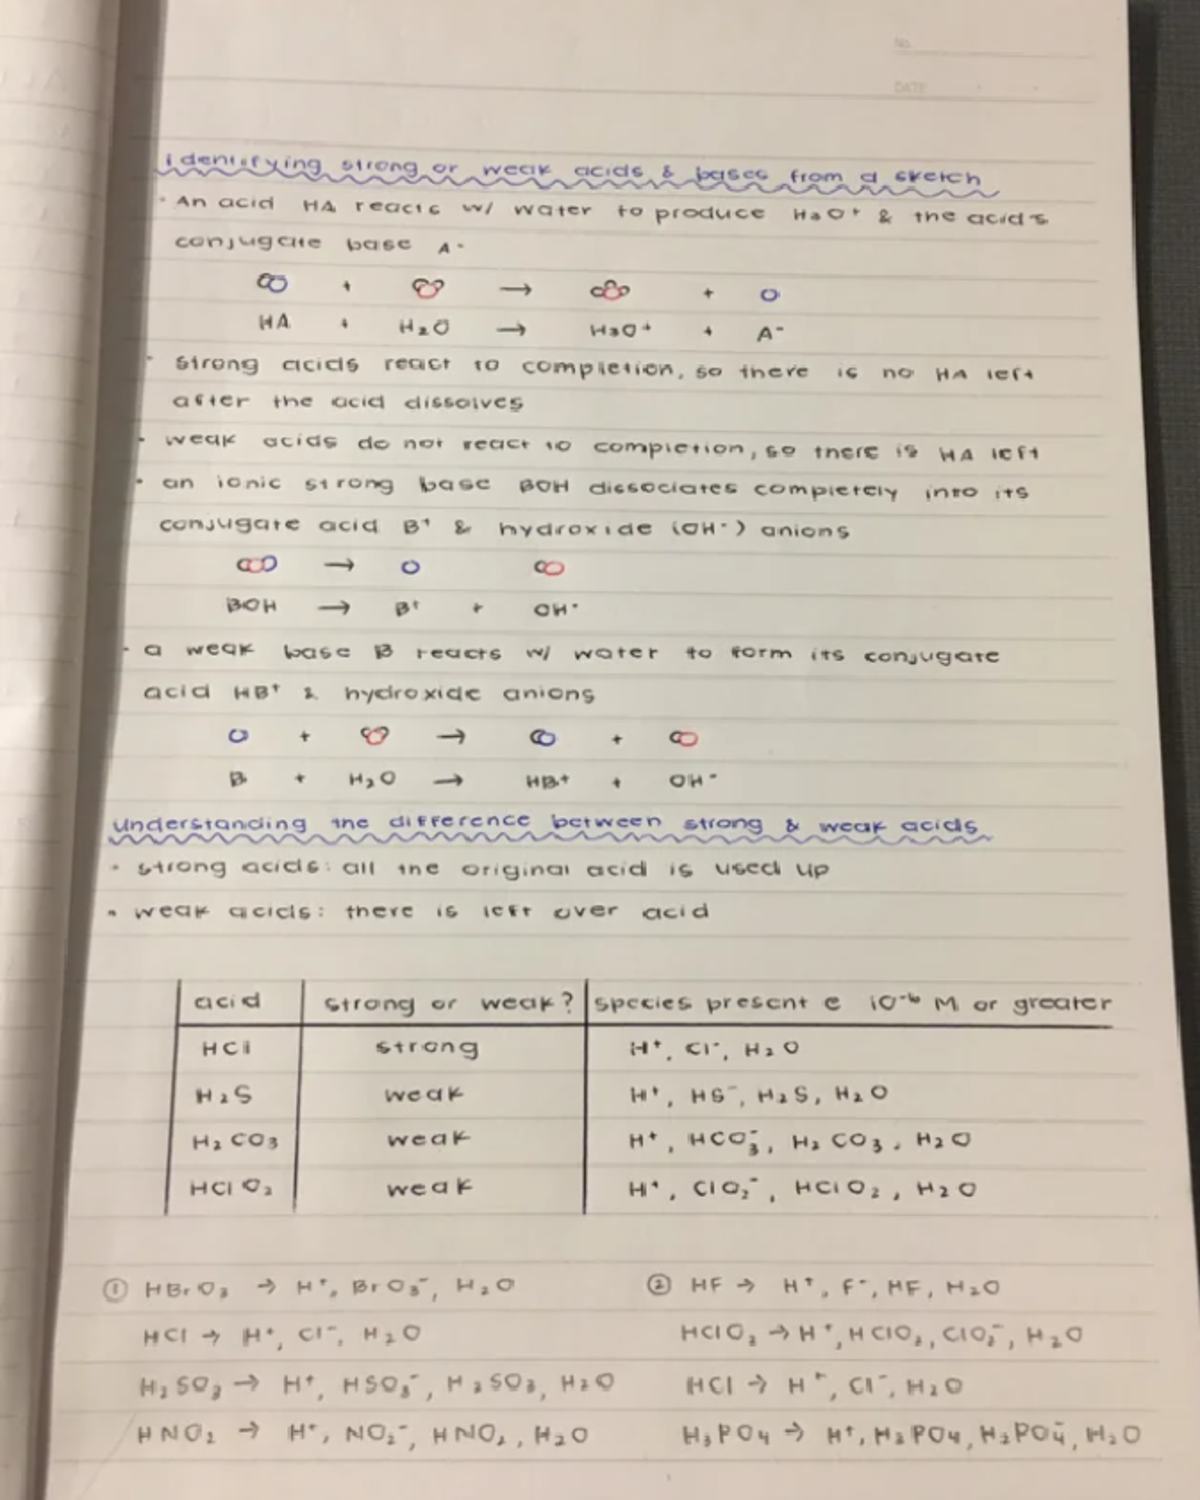 No.
DATE
identifying strong or weak acids & bases from a sketch
· An acid HA reacts w/ water to produce H₃O⁺ & the acid's
conjugate base A⁻
+ → +
HA + H₂O → H₃O⁺ + A⁻
· strong acids react to completion, so there is no HA left
after the acid dissolves
· weak acids do not react to completion, so there is HA left
· an ionic strong base BOH dissociates completely into its
conjugate acid B⁺ & hydroxide (OH⁻) anions
→
BOH → B⁺ + OH⁻
· a weak base B reacts w/ water to form its conjugate
acid HB⁺ & hydroxide anions
+ → +
B + H₂O → HB⁺ + OH⁻
understanding the difference between strong & weak acids
· strong acids: all the original acid is used up
· weak acids: there is left over acid
acid strong or weak? species present @ 10⁻⁶ M or greater
HCl strong H⁺, Cl⁻, H₂O
H₂S weak H⁺, HS⁻, H₂S, H₂O
H₂CO₃ weak H⁺, HCO₃⁻, H₂CO₃, H₂O
HClO₂ weak H⁺, ClO₂⁻, HClO₂, H₂O
① HBrO₃ → H⁺, BrO₃⁻, H₂O
HCl → H⁺, Cl⁻, H₂O
H₂SO₃ → H⁺, HSO₃⁻, H₂SO₃, H₂O
HNO₂ → H⁺, NO₂⁻, HNO₂, H₂O
② HF → H⁺, F⁻, HF, H₂O
HClO₂ → H⁺, HClO₂, ClO₂⁻, H₂O
HCl → H⁺, Cl⁻, H₂O
H₃PO₄ → H⁺, H₃PO₄, H₂PO₄⁻, H₂O